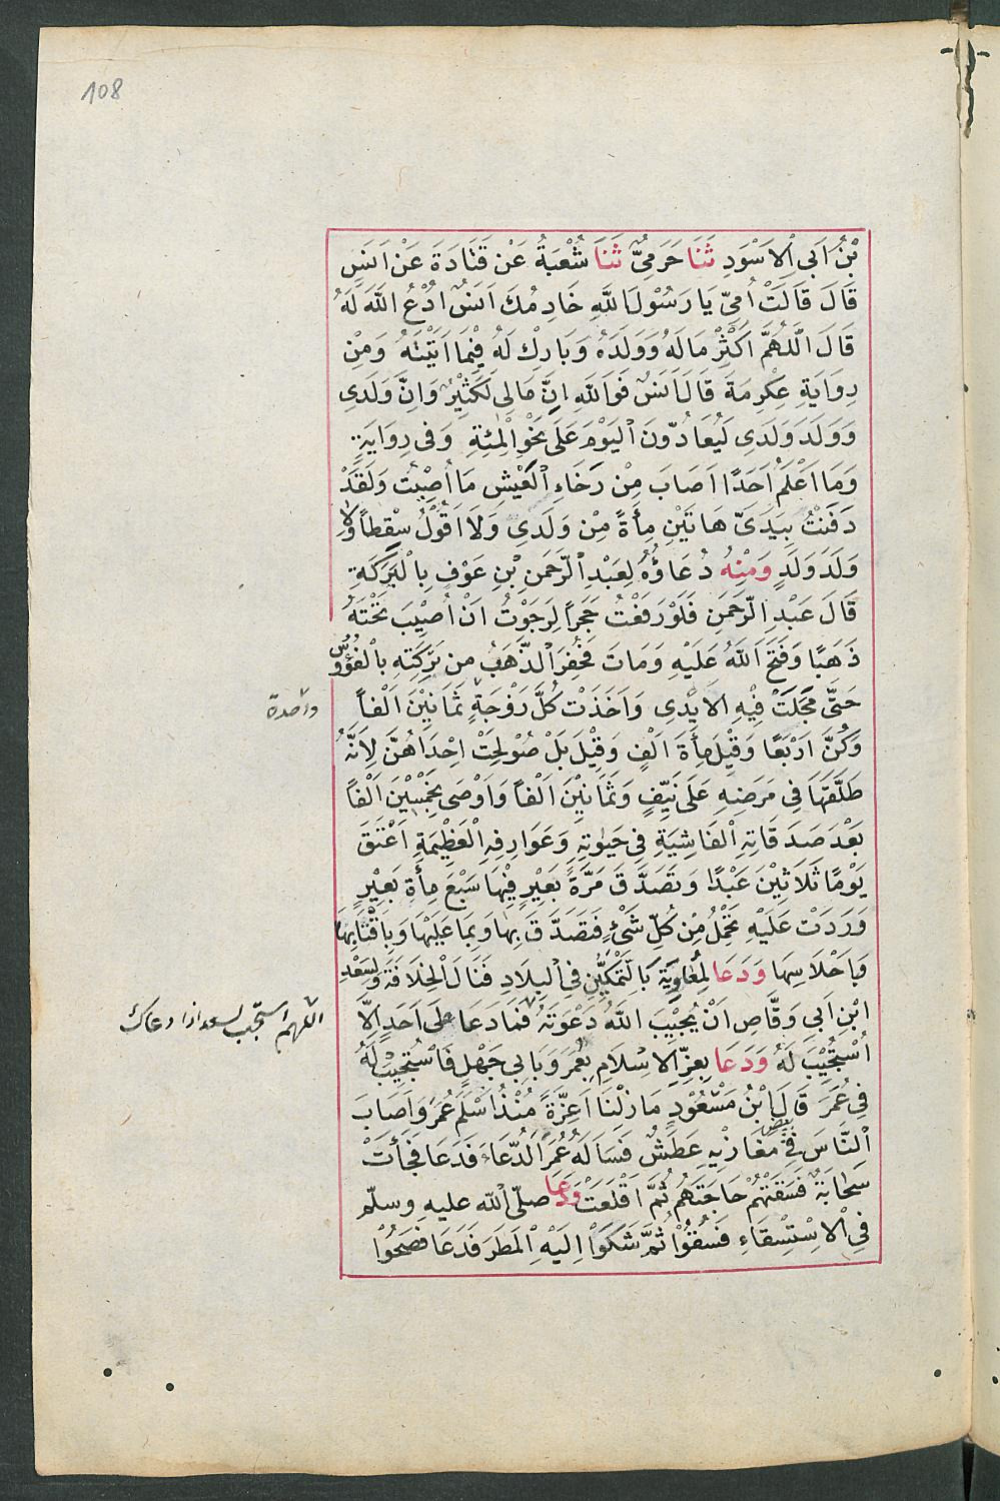 108
بْنُ اَبِي اْلاَسْوَدِ ثَنَا حَرَمِيٌّ ثَنَا شُعْبَةُ عَنْ قَتَادَةَ عَنْ اَنَسٍ
قَالَ قَالَتْ اُمِّي يَا رَسُوْلَ اللّٰهِ خَادِمُكَ اَنَسٌ اُدْعُ اللّٰهَ لَهُ
قَالَ اَللّٰهُمَّ اَكْثِرْ مَالَهُ وَوَلَدَهُ وَبَارِكْ لَهُ فِيْمَا اٰتَيْتَهُ وَمِنْ
رِوَايَةِ عِكْرِمَةَ قَالَ اَنَسٌ فَوَاللّٰهِ اِنَّ مَالِي لَكَثِيْرٌ وَاِنَّ وَلَدِي
وَوَلَدَ وَلَدِي لَيُعَادُّوْنَ اْليَوْمَ عَلَى نَحْوِ اْلمِئَةِ وَفِي رِوَايَةٍ
وَمَا اَعْلَمُ اَحَدًا اَصَابَ مِنْ رَخَاءِ اْلعَيْشِ مَا اُصِبْتُ وَلَقَدْ
دَفَنْتُ بِيَدَيَّ هَاتَيْنِ مِأَةً مِنْ وَلَدِي وَلَا اَقُوْلُ سِقْطاً وَلَا
وَلَدَ وَلَدٍ وَمِنْهُ دُعَاؤُهُ لِعَبْدِ الرَّحْمَنِ بْنِ عَوْفٍ بِاْلبَرَكَةِ
قَالَ عَبْدُ الرَّحْمَنِ فَلَوْ رَفَعْتُ حَجَراً لَرَجَوْتُ اَنْ اُصِيْبَ تَحْتَهُ
ذَهَبًا وَفَتَحَ اللّٰهُ عَلَيْهِ وَمَاتَ فَحُفِرَ الذَّهَبُ مِنْ تَرِكَتِهِ بِاْلفُؤُسِ
حَتَّى مَجَلَتْ فِيْهِ اْلاَيْدِي وَاَخَذَتْ كُلُّ زَوْجَةٍ ثَمَانِيْنَ اَلْفاً
واحدة
وَكُنَّ اَرْبَعًا وَقِيْلَ مِأَةَ اَلْفٍ وَقِيْلَ بَلْ صُوْلِحَتْ اِحْدَاهُنَّ لِاَنَّهُ
طَلَّقَهَا فِي مَرَضِهِ عَلَى نَيِّفٍ وَثَمَانِيْنَ اَلْفًا وَاَوْصَى بِخَمْسِيْنَ اَلْفًا
بَعْدَ صَدَقَاتِهِ اْلفَاشِيَةِ فِي حَيٰوتِهِ وَعَوَارِفِهِ اْلعَظِيْمَةِ اَعْتَقَ
يَوْمًا ثَلَاثِيْنَ عَبْدًا وَتَصَدَّقَ مَرَّةً بَعِيْرٍ فِيْهَا سَبْعَ مِأَةِ بَعِيْرٍ
وَرَدَتْ عَلَيْهِ تَحْمِلُ مِنْ كُلِّ شَيْءٍ فَتَصَدَّقَ بِهَا وَبِمَا عَلَيْهَا وَبِاَقْتَابِهَا
وَبِاَحْلَاسِهَا وَدَعَا لِمُعَاوِيَةَ بِالتَّمْكِيْنِ فِي اْلبِلَادِ فَنَالَ اْلخِلَافَةَ وَلِسَعْدِ
ابْنِ اَبِي وَقَّاصٍ اَنْ يُجِيْبَ اللّٰهُ دَعْوَتَهُ فَمَا دَعَا عَلَى اَحَدٍ اِلَّا
اللهم استجب لسعد اذا دعاك
اُسْتُجِيْبَ لَهُ وَدَعَا بِعِزِّ اْلاِسْلَامِ بِعُمَرَ وَبِاَبِي جَهْلٍ فَاسْتُجِيْبَ لَهُ
فِي عُمَرَ قَالَ ابْنُ مَسْعُوْدٍ مَا زِلْنَا اَعِزَّةً مُنْذُ اَسْلَمَ عُمَرُ وَاَصَابَ
النَّاسَ فِي بعض مَغَازِيْهِ عَطَشٌ فَسَاَلَهُ عُمَرُ الدُّعَاءَ فَدَعَا فَجَأَتْ
سَحَابَةٌ فَسَقَتْهُمْ حَاجَتَهُمْ ثُمَّ اَقْلَعَتْ وَدَعَا صلّى الله عليه وسلّم
فِي اْلاِسْتِسْقَاءِ فَسُقُوْا ثُمَّ شَكَوْا اِلَيْهِ اْلمَطَرَ فَدَعَا فَصَحُوْا